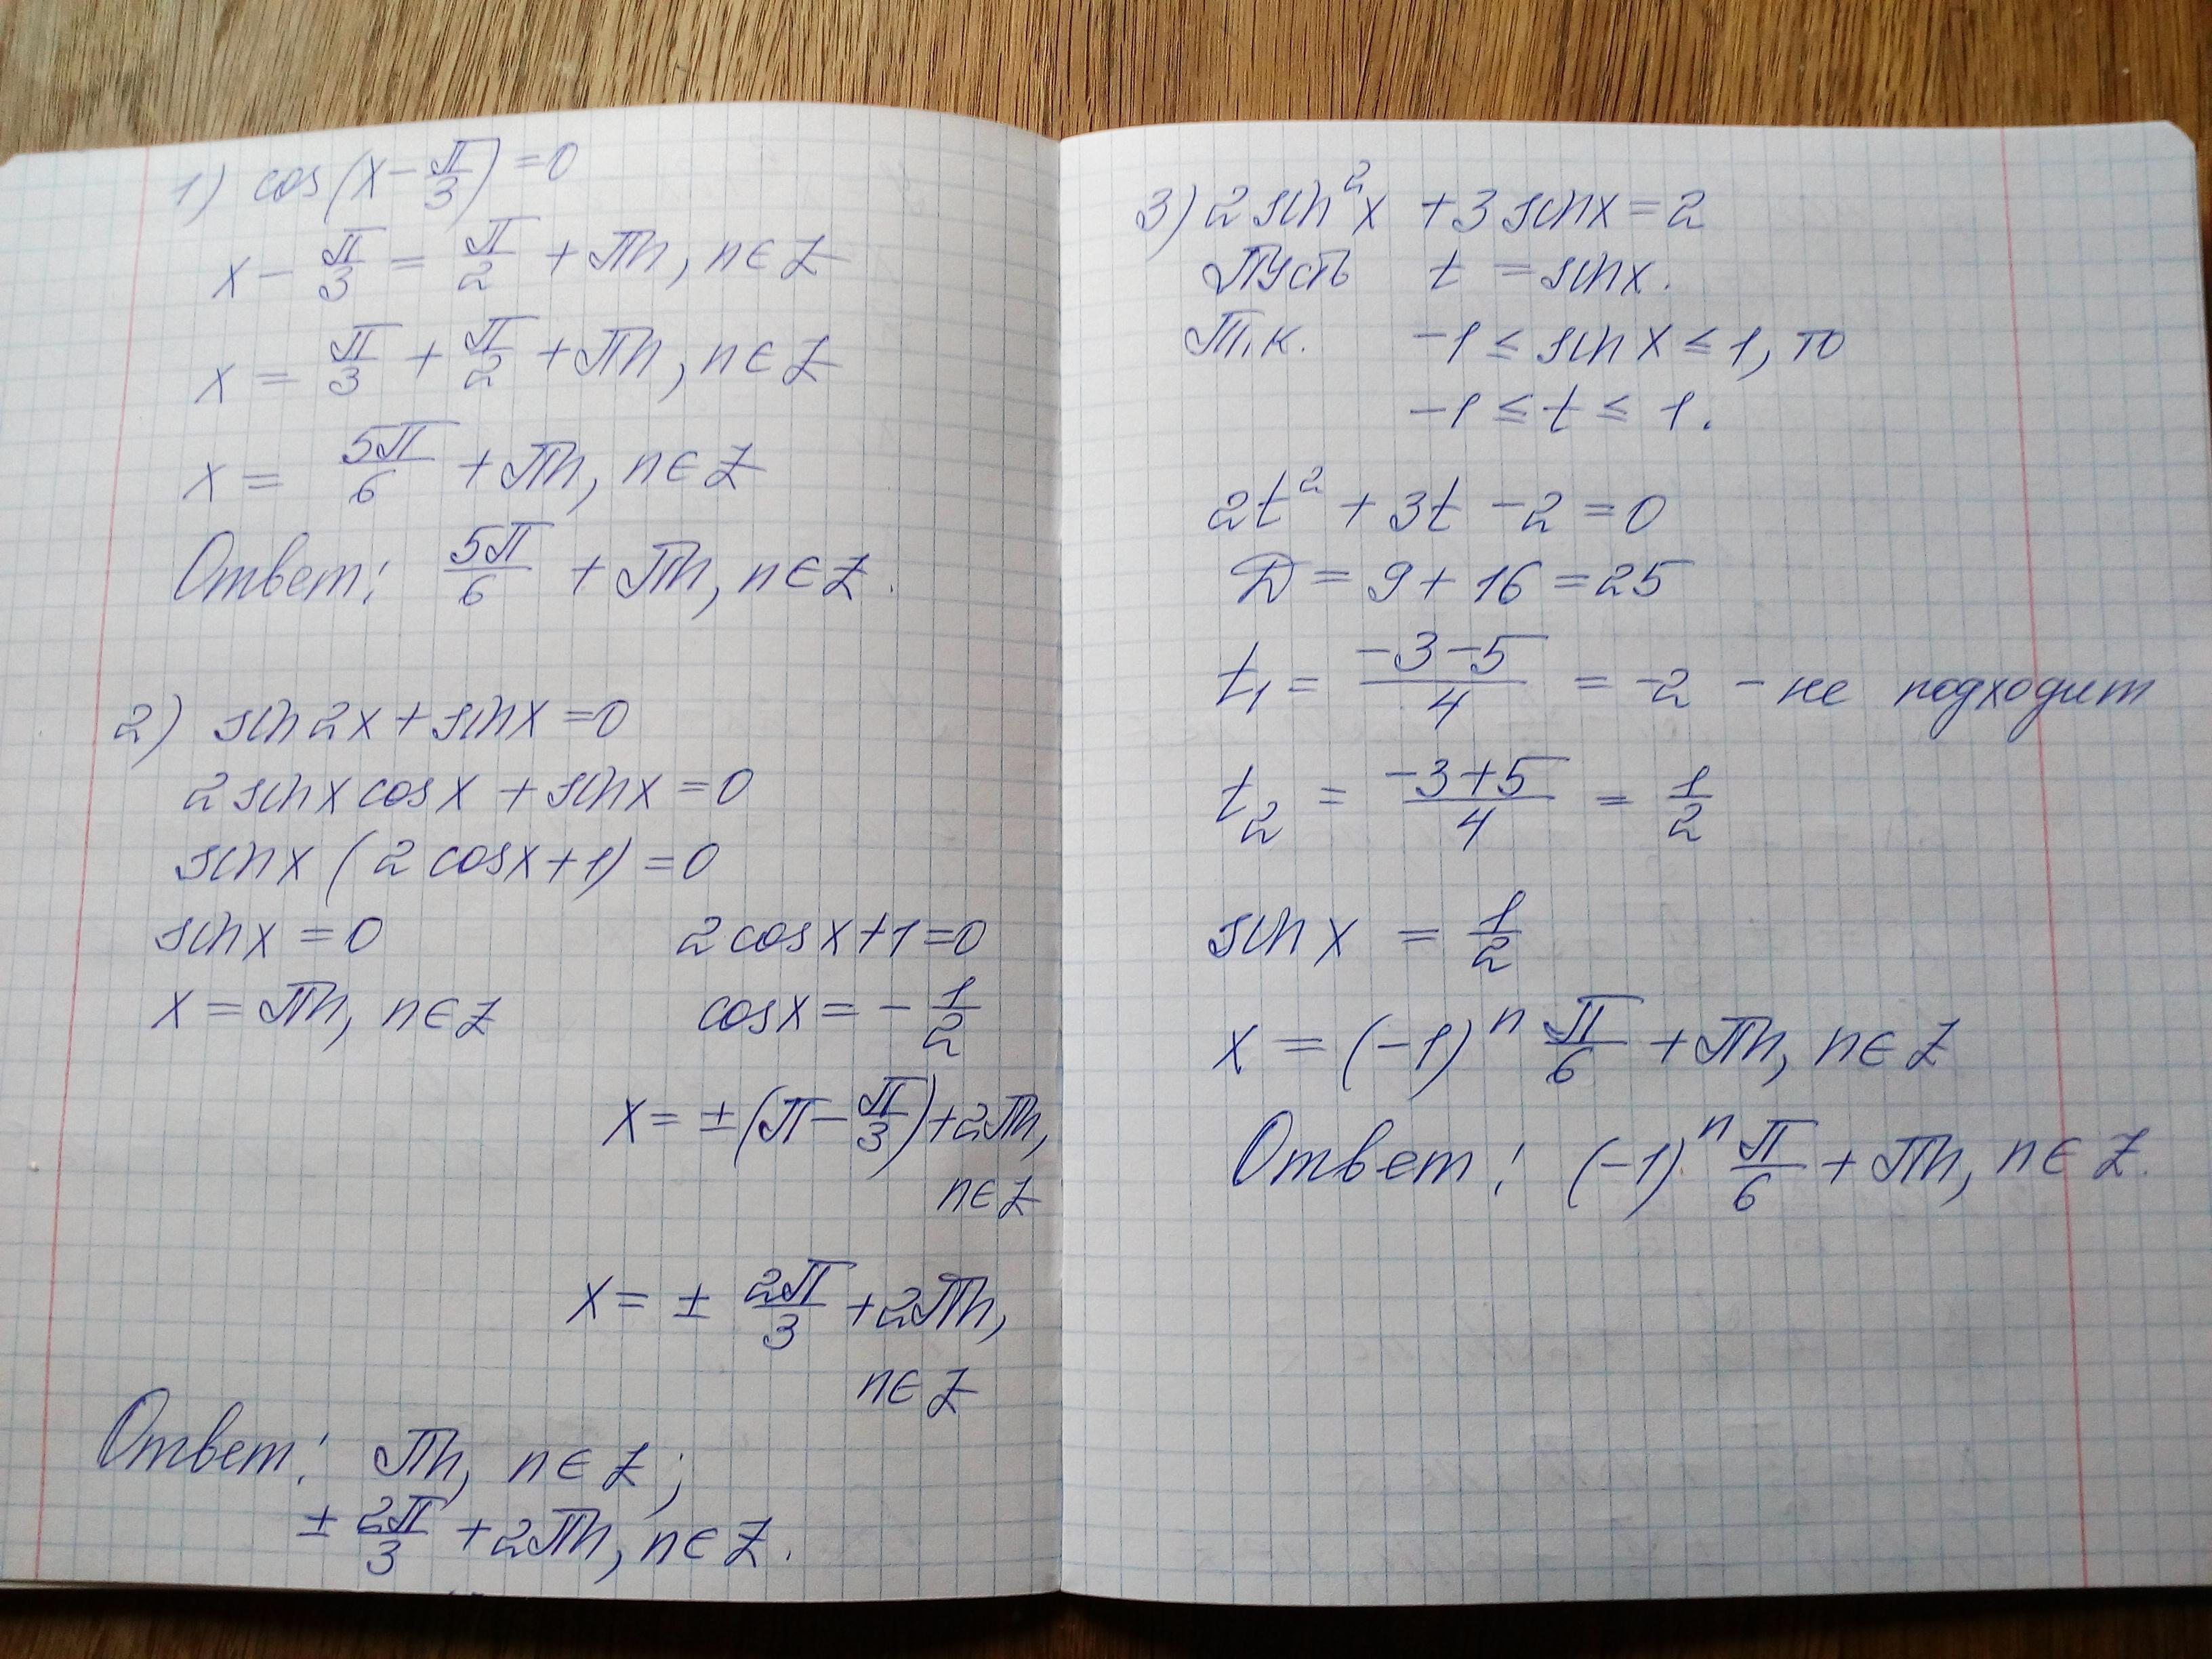 1) cos(x - π/3) = 0
x - π/3 = π/2 + πn, n ∈ Z
x = π/3 + π/2 + πn, n ∈ Z
x = 5π/6 + πn, n ∈ Z
Ответ: 5π/6 + πn, n ∈ Z.
2) sin2x + sinx = 0
2 sinx cosx + sinx = 0
sinx (2 cosx + 1) = 0
sinx = 0 2 cosx + 1 = 0
x = πn, n ∈ Z cosx = - 1/2
x = ± (π - π/3) + 2πn,
n ∈ Z
x = ± 2π/3 + 2πn,
n ∈ Z
Ответ: πn, n ∈ Z;
± 2π/3 + 2πn, n ∈ Z.
3) 2 sin²x + 3 sinx = 2
Пусть t = sinx.
Т.к. -1 ≤ sinx ≤ 1, то
-1 ≤ t ≤ 1.
2t² + 3t - 2 = 0
Д = 9 + 16 = 25
t₁ = (-3-5)/4 = -2 - не подходит
t₂ = (-3+5)/4 = 1/2
sinx = 1/2
x = (-1)ⁿ π/6 + πn, n ∈ Z
Ответ: (-1)ⁿ π/6 + πn, n ∈ Z.